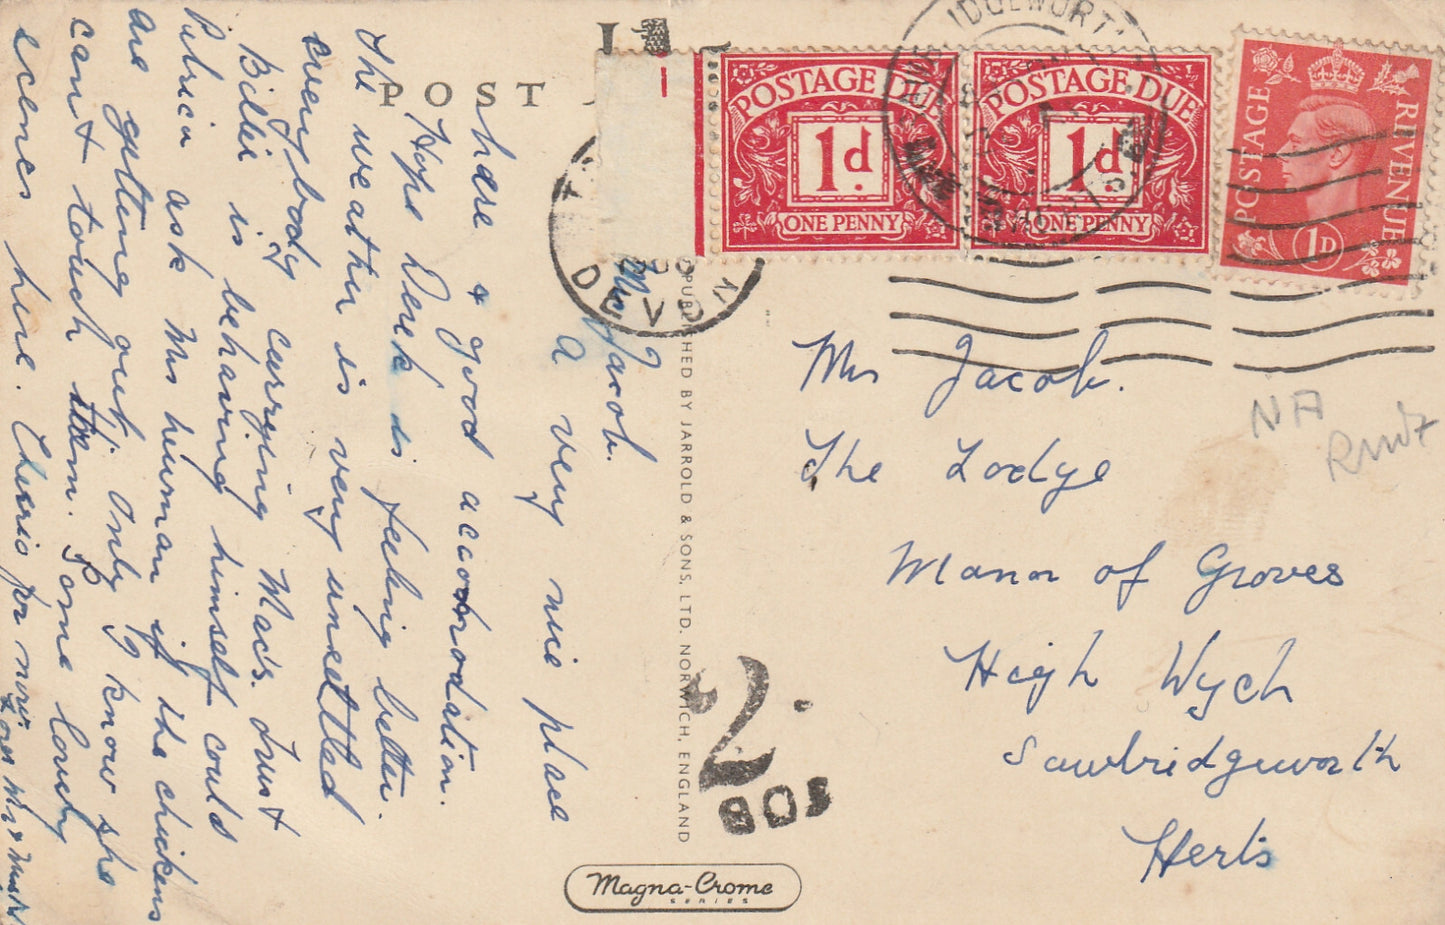 POST
POSTAGE DUE
1d
ONE PENNY
POSTAGE DUE
1d
ONE PENNY
POSTAGE
REVENUE
1D
DEVON
Mrs Jacob.
A very nice place
here & good accomodation.
Hope Derek is feeling better.
The weather is very unsettled
everybody carrying Mac's. Trust
Billie is behaving himself could
Patrica ask Mrs human if the chickens
are getting out. Only I know she
cant touch them. Some lovely
scenes here. Cheerio for now.
Love Mr & Mrs
PUBLISHED BY JARROLD & SONS, LTD. NORWICH, ENGLAND
Mrs Jacob.
The Lodge
Manor of Groves
High Wych
Sawbridgeworth
Herts
NA
2
Magna-Crome
SERIES